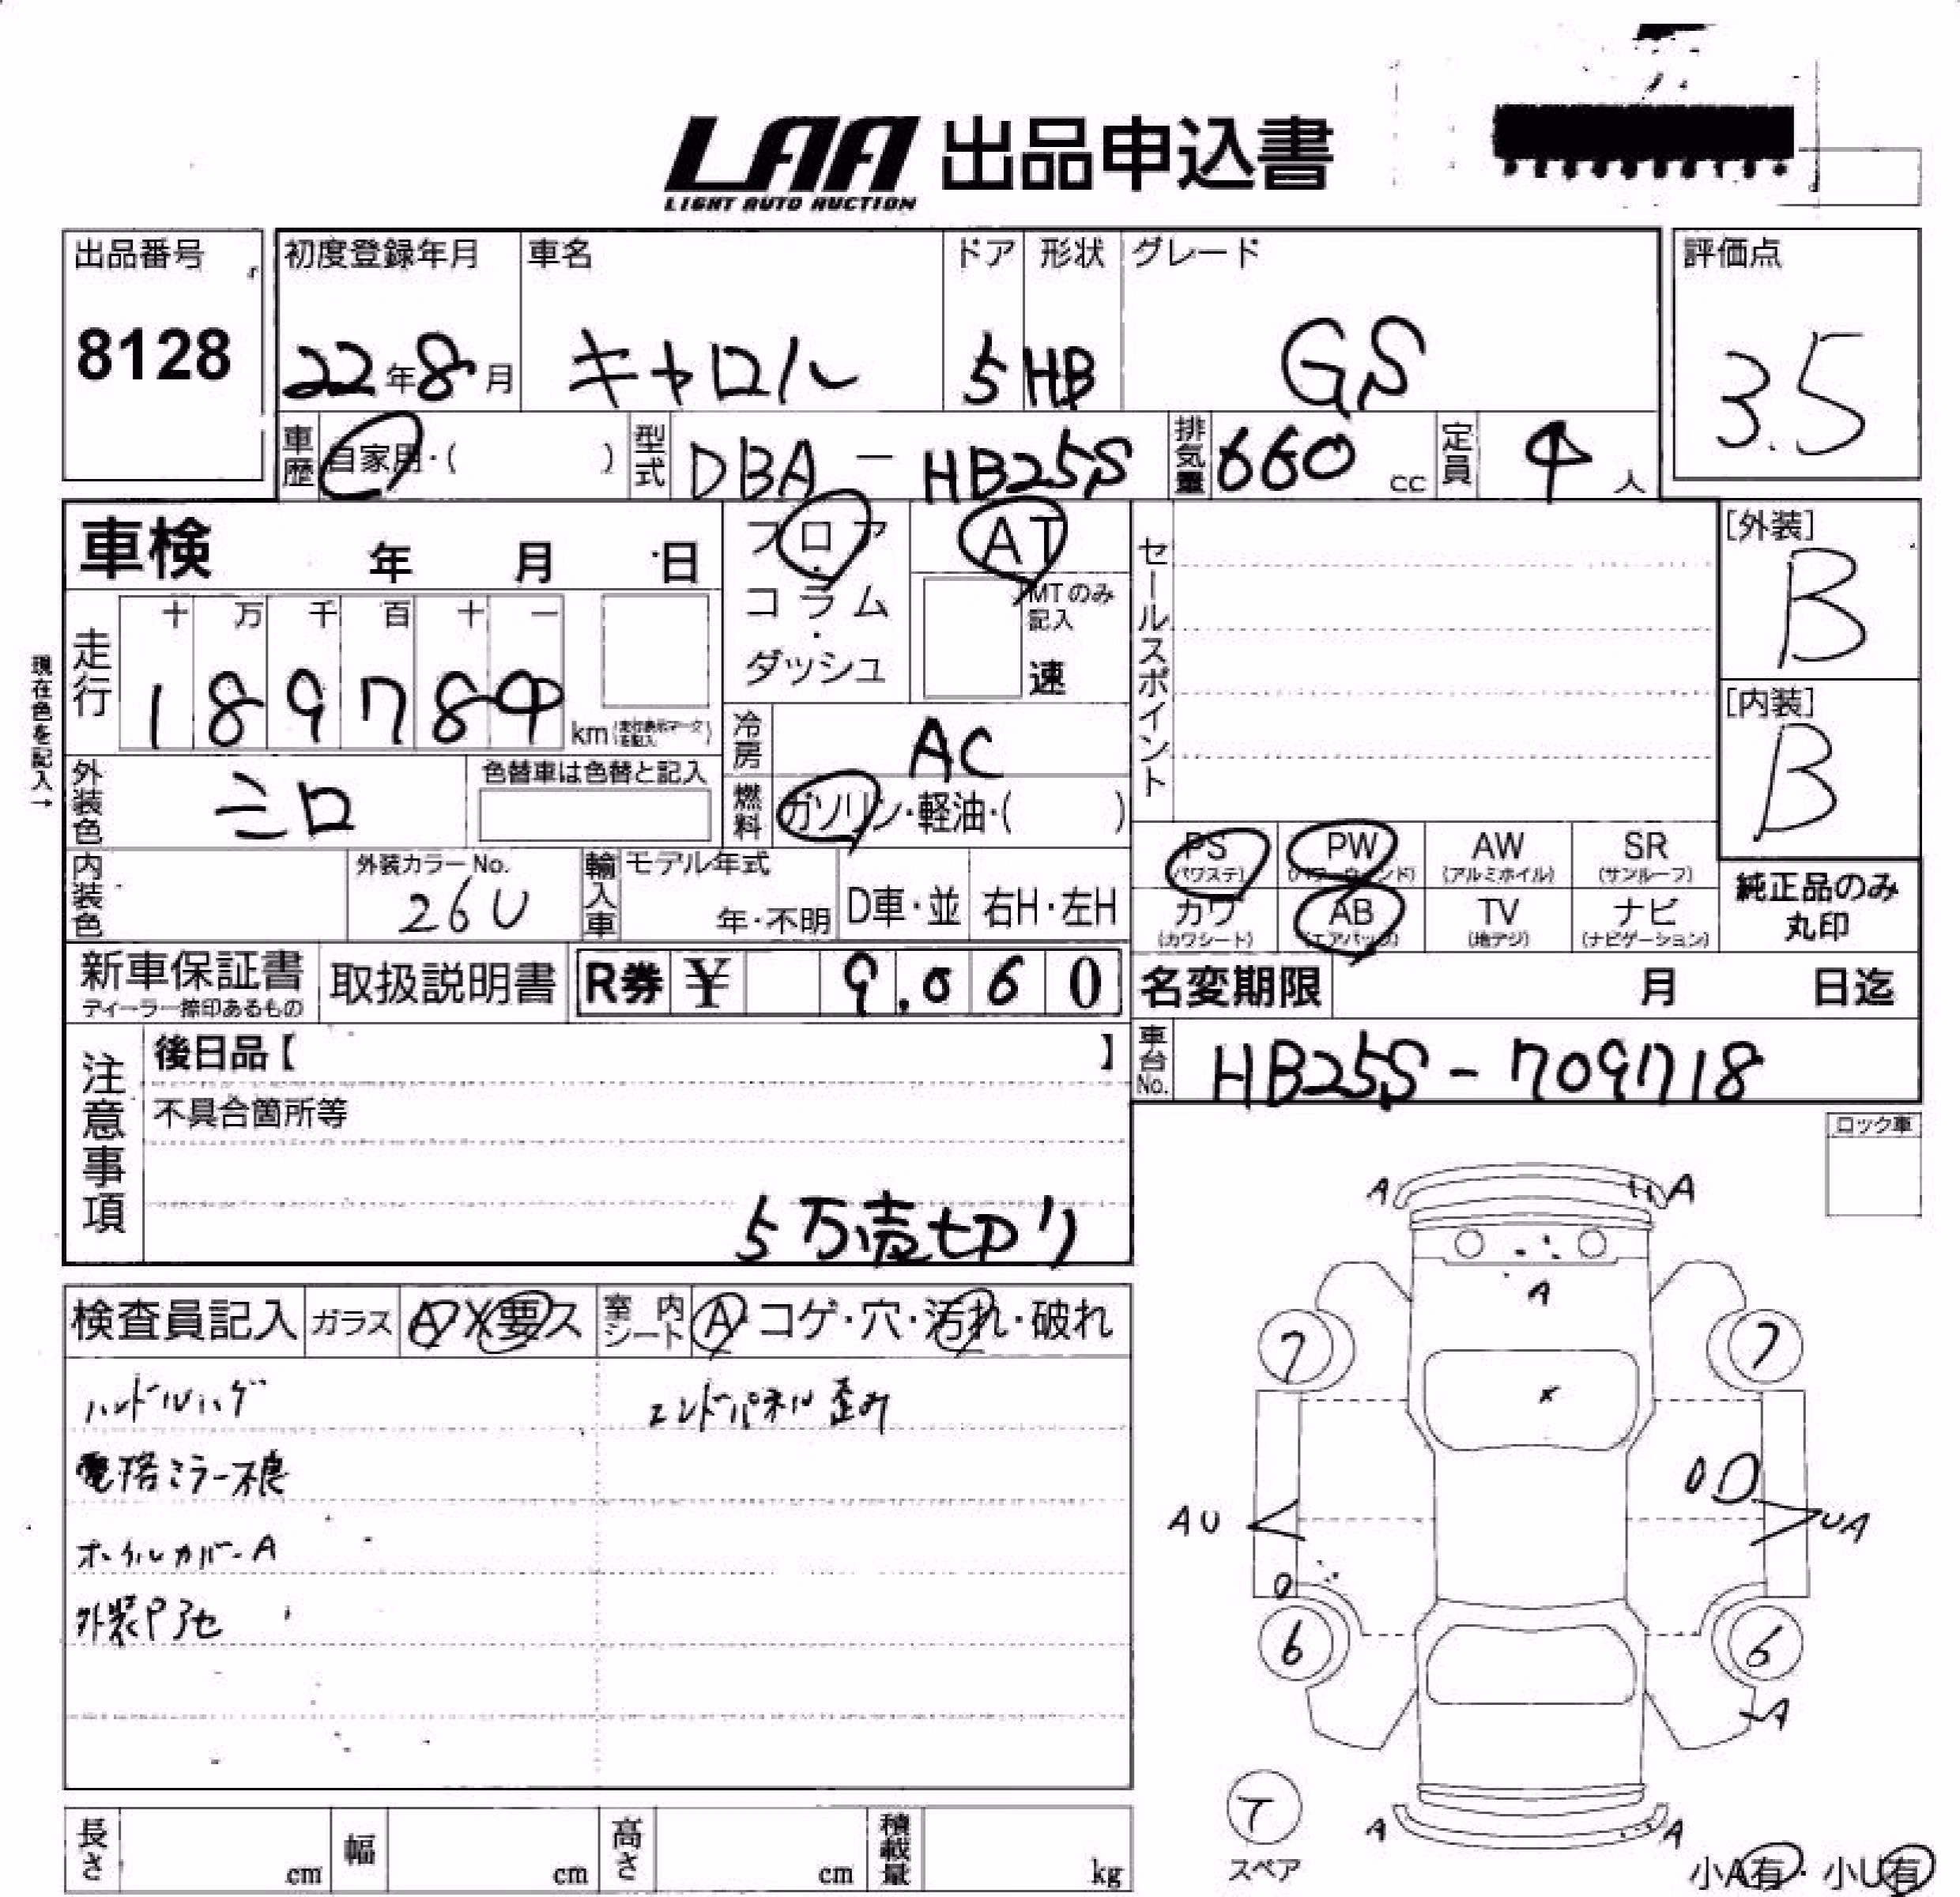 LAA 出品申込書
LIGHT AUTO AUCTION
出品番号
8128
初度登録年月
22年8月
車名
キャロル
ドア
5
形状
HB
グレード
GS
評価点
3.5
車歴
自家用・( )
型式
DBA-HB25S
排気量
660 cc
定員
4 人
車検 年 月 日
フロア
・
コラム
・
ダッシュ
AT
MTのみ
記入
速
セールスポイント
[外装]
B
[内装]
B
現在色を記入→
走行
十 万 千 百 十 一
1 8 9 7 8 4
km
冷房
AC
外装色
シロ
色替車は色替と記入
燃料
ガソリン・軽油・( )
内装色
外装カラーNo.
26U
輸入車
モデル年式
年・不明
D車・並
右H・左H
PS
(パワステ)
PW
(パワーウィンド)
AW
(アルミホイル)
SR
(サンルーフ)
カワ
(カワシート)
AB
(エアバック)
TV
(地デジ)
ナビ
(ナビゲーション)
純正品のみ
丸印
新車保証書
ディーラー捺印あるもの
取扱説明書
R券 ¥ 9,060
名変期限 月 日迄
車台No.
HB25S-709718
注意事項
後日品【 】
不具合箇所等
5万売切り
ロック車
検査員記入
ガラス
A
X
要ス
室内シート
A・コゲ・穴・汚れ・破れ
ハンドルハゲ
エンドパネル歪み
電格ミラー不良
ホイルカバーA
A A
A
7 7
x
D
AU
UA
6 6
A
T
スペア
A A
小A有・小U有
長さ cm
幅 cm
高さ cm
積載量 kg